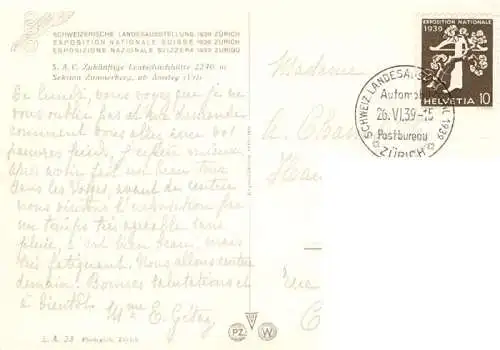 SCHWEIZERISCHE LANDESAUSSTELLUNG 1939 ZÜRICH
EXPOSITION NATIONALE SUISSE 1939 ZURICH
ESPOSIZIONE NAZIONALE SVIZZERA 1939 ZURIGO
S. A. C. Zukünftige Leutschachhütte 2240 m
Sektion Zimmerberg, ob Amsteg (Uri)
Ce lundi, vous voyez que je ne
vous oublie pas et me demandez
comment vous allez avec vos
pauvres pieds, j'espère mieux
après avoir fait un beau tour
dans les Vosges, avant de rentrer
nous visitons l'exposition par
un temps très agréable sans
pluie, c'est bien beau, mais
très fatiguant. Nous allons rentrer
demain. Bonnes salutations et
à bientôt. Mme E.
L. A. 38 Photoglob, Zürich
PZ
W
Madame
a
EXPOSITION NATIONALE
1939
HELVETIA 10
SCHWEIZ. LANDESAUSSTELLUNG 1939
Automobil-
26.VI.39-15
Postbureau
ZÜRICH